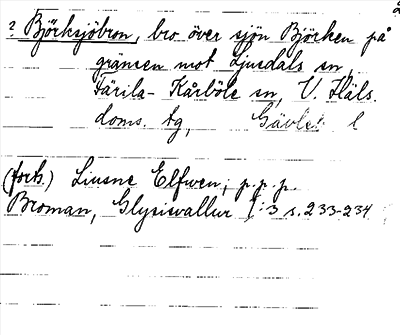 ? Björksjöbron, bro över sjön Björken på
gränsen mot Ljusdals sn,
Färila-Kårböle sn, V. Häls.
doms. tg, Gävleb. l
(forts.) Liusne Elfwen; p.p.p.
Broman, Glysisvallur I:3 s. 233-234